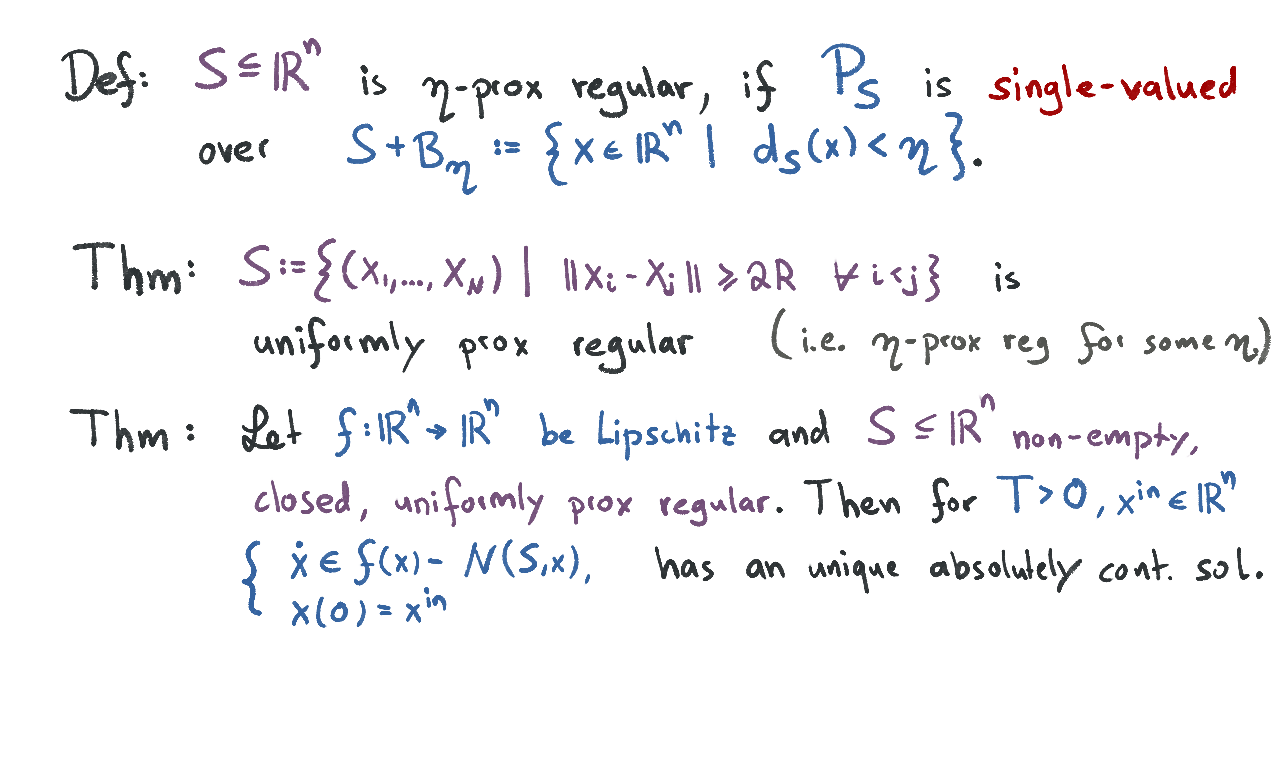 Def: S ⊆ ℝⁿ is η-prox regular, if P_S is single-valued
over S + B_η := {x ∈ ℝⁿ | d_S(x) < η}.
Thm: S := {(x₁,..., x_N) | ||x_i - x_j|| ⩾ 2R ∀ i<j} is
uniformly prox regular (i.e. η-prox reg for some η)
Thm: Let f: ℝⁿ → ℝⁿ be Lipschitz and S ⊆ ℝⁿ non-empty,
closed, uniformly prox regular. Then for T > 0, x^in ∈ ℝⁿ
{ ẋ ∈ f(x) - N(S,x), has an unique absolutely cont. sol.
x(0) = x^in